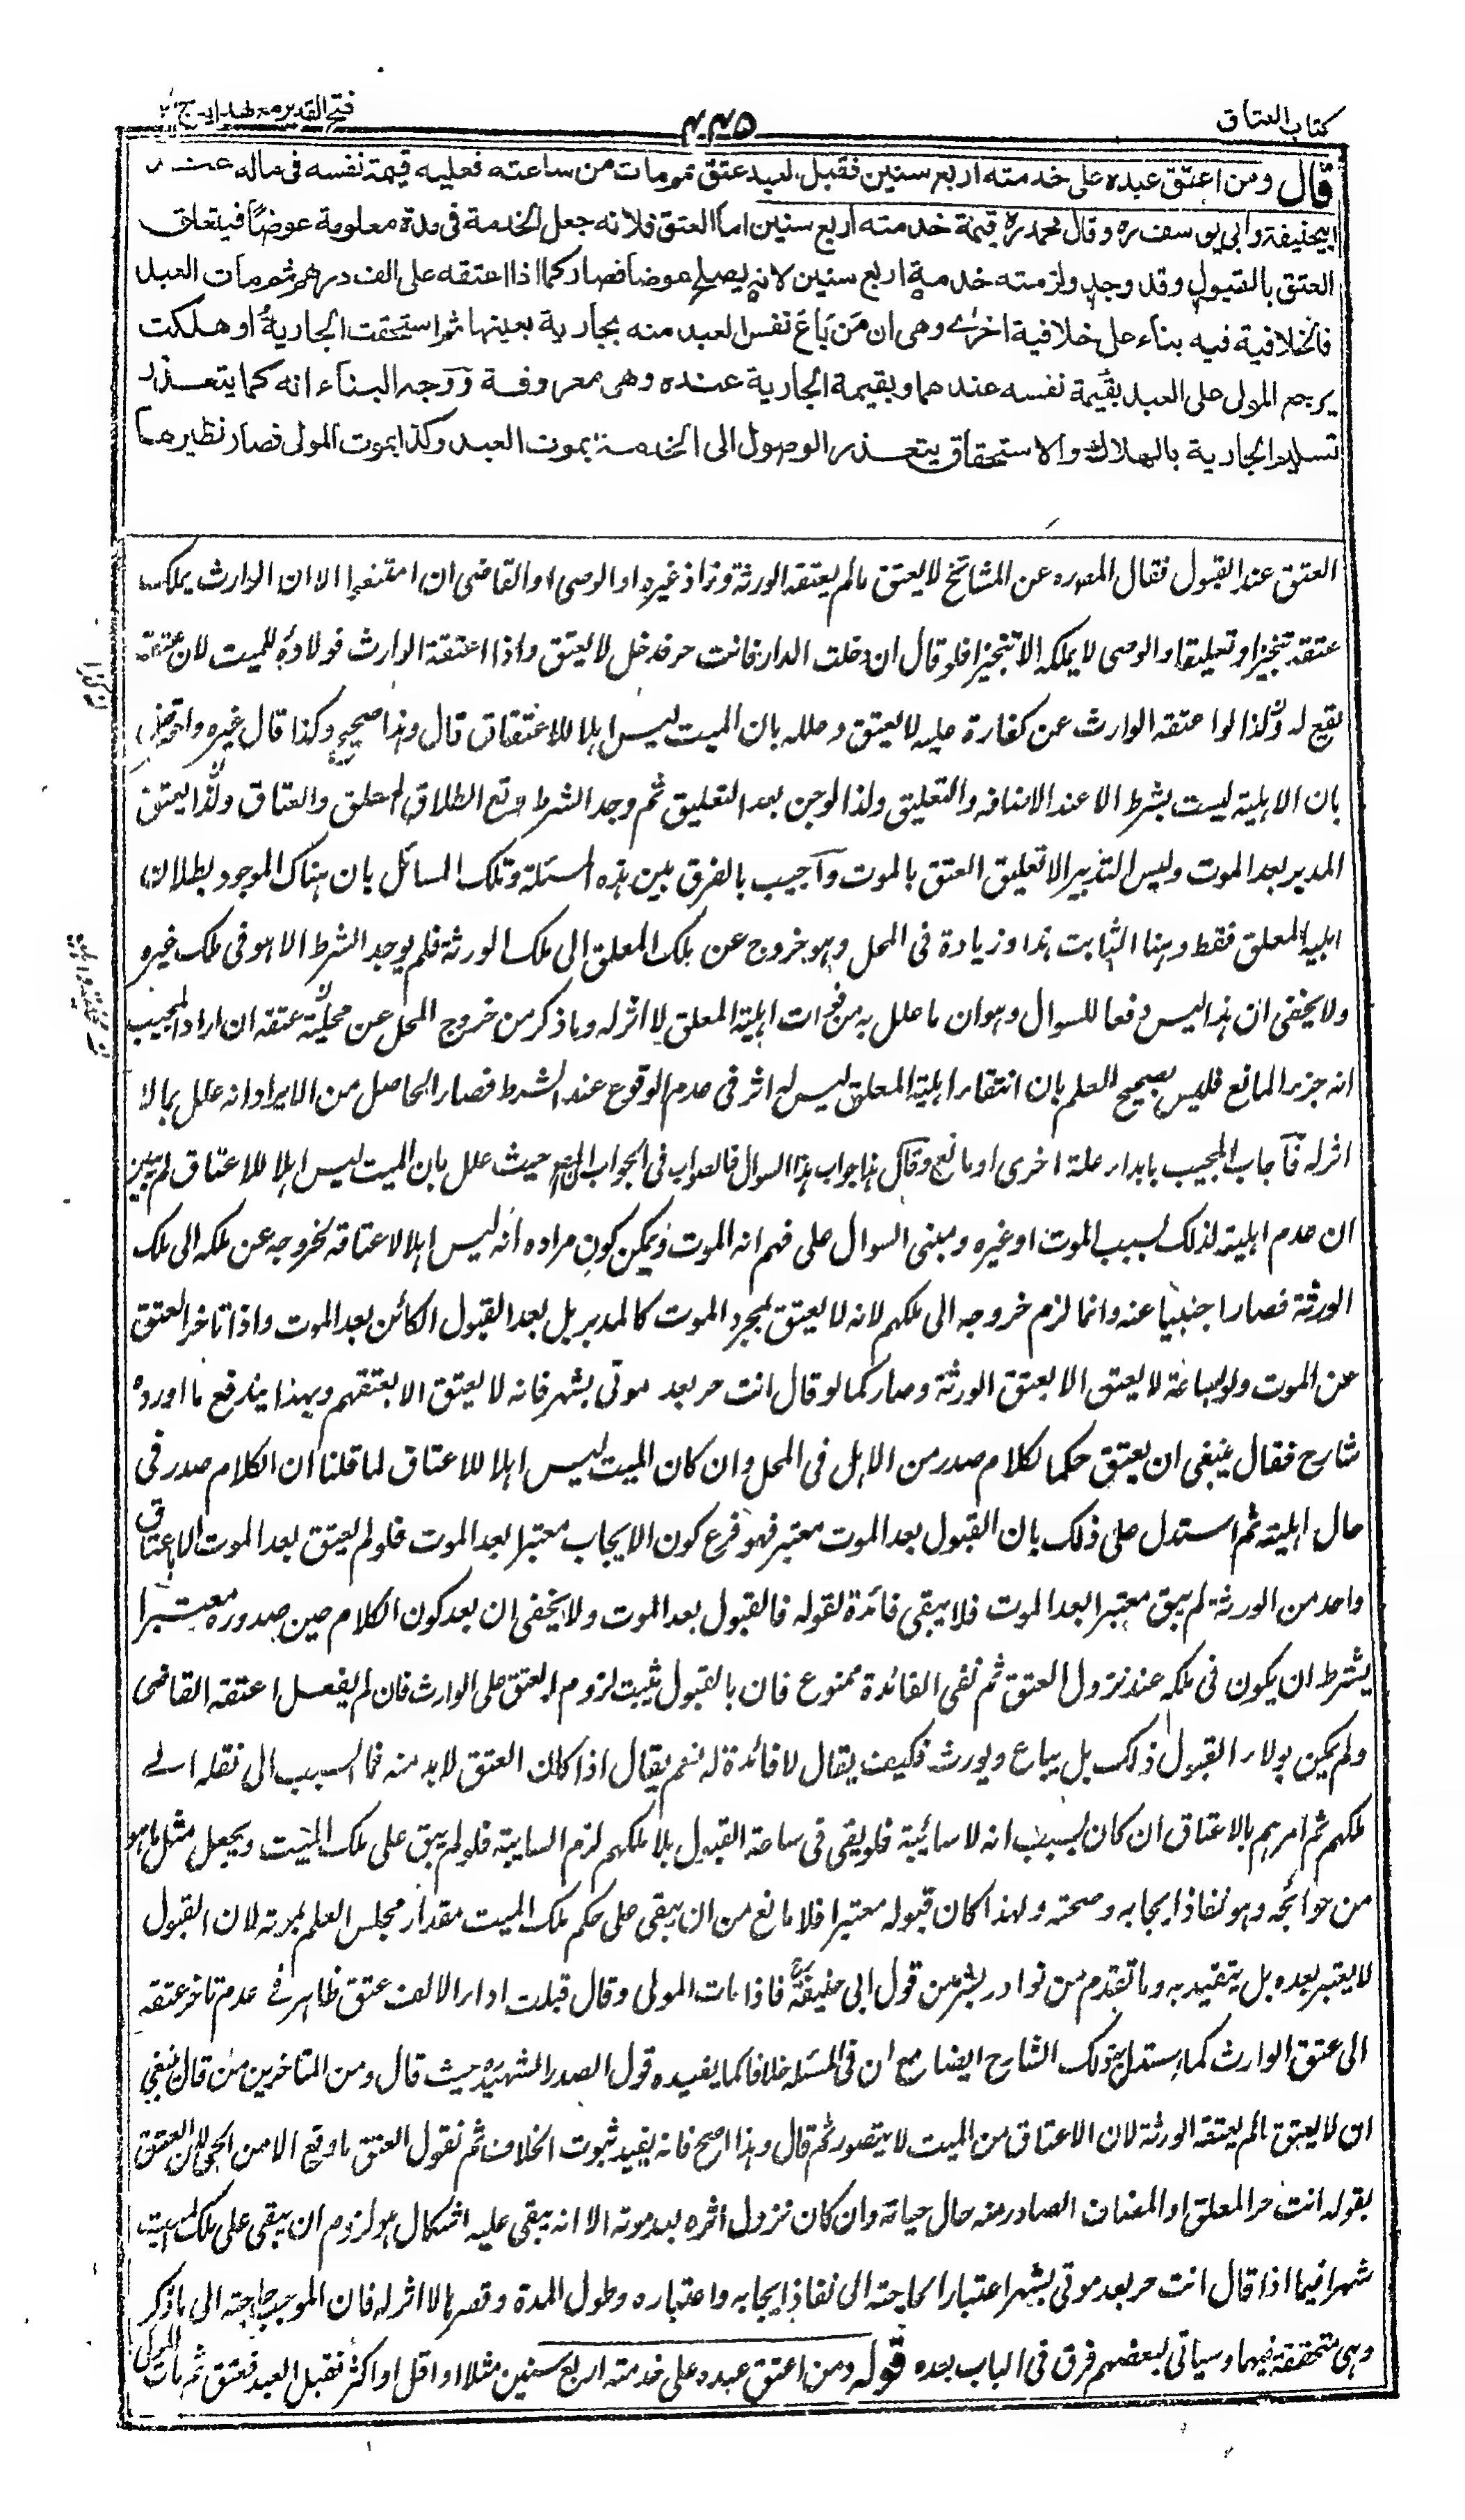 كتاب العتاق
۴۴۵
فتح القدير مع هدايه ج ۲
قال ومن اعتق عبده على خدمته اربع سنين فقبل العبد عتق ثم مات من ساعته فعليه قيمة نفسه فى ماله عند
ابيحنيفة وابي يوسف ره وقال محمد ره قيمة خدمته اربع سنين اما العتق فلانه جعل الخدمة فى مدة معلومة عوضًا فيتعلق
العتق بالقبول وقد وجد ولزمته خدمة اربع سنين لانه يصلح عوضا فصار كما اذا اعتقه على الف درهم ثم مات العبد
فالخلافية فيه بناء على خلافية اخرى وهى ان من باع نفس العبد منه بجارية بعينها ثم استحقت الجارية او هلكت
يرجع المولى على العبد بقيمة نفسه عندهما وبقيمة الجارية عنده وهى معروفة ووجه البناء انه كما يتعذر
تسليم الجارية بالهلاك والاستحقاق يتعذر الوصول الى الخدمة بموت العبد وكذا بموت المولى فصار نظيرها
العتق عند القبول فقال المصره عن المشائخ لا يعتق مالم يعتقه الورثة وزاد غيره او الوصى او القاضى ان امتنعوا الا ان الوارث يملك
عتقه تنجيزا وتعليقا والوصى لا يملكه الا تنجيزا فلو قال ان دخلت الدار فانت حر فدخل لا يعتق واذا اعتقه الوارث فولاؤه للميت لان عتقه
يقع له ولذا لو اعتقه الوارث عن كفارة عليه لا يعتق وعلله بان الميت ليس اهلا للاعتقاق قال وهذا صحيح وكذا قال غيره واعترض
بان الاهلية ليست بشرط الا عند الاضافة والتعليق ولذا لو جن بعد التعليق ثم وجد الشرط وقع الطلاق المعلق والعتاق ولذا يعتق
المدبر بعد الموت وليس التدبير الا تعليق العتق بالموت وآجيب بالفرق بين هذه المسئلة وتلك المسائل بان هناك الموجود بطلان
اهلية المعلق فقط وهنا الثابت هذا وزيادة فى المحل وهو خروج عن ملك المعلق الى ملك الورثة فلم يوجد الشرط الا هو فى ملك غيره
ولا يخفى ان هذا ليس دفعا للسوال وهو ان ما علل به من فوات اهلية المعلق لا اثر له وما ذكر من خروج المحل عن محلية عتقه ان اراد المجيب
انه جزء المانع فليس بصحيح للعلم بان انتفاء اهلية المعلق ليس له اثر فى عدم الوقوع عند الشرط فصار الحاصل من الايراد انه علل بما لا
اثر له فآجاب المجيب بابداء علة اخرى او مانع وقال هذا جواب هذا السوال فالصواب فى الجواب حيث علل بان الميت ليس اهلا للاعتاق لم يبين
ان عدم اهليته لذلك بسبب الموت او غيره ومبنى السوال على فهم انه الموت ويمكن كون مراده انه ليس اهلا لاعتاقه لخروجه عن ملكه الى ملك
الورثة فصار اجنبيا عنه وانما لزم خروجه الى ملكهم لانه لا يعتق بمجرد الموت كالمدبر بل بعد القبول الكائن بعد الموت واذا تاخر العتق
عن الموت ولو بساعة لا يعتق الا بعتق الورثة وصار كما لو قال انت حر بعد موتى بشهر فانه لا يعتق الا بعتقهم وبهذا يندفع ما اورده
شارح فقال ينبغى ان يعتق حكما لكلام صدر من الاهل فى المحل وان كان الميت ليس اهلا للاعتاق لما قلنا ان الكلام صدر فى
حال اهليته ثم استدل على ذلك بان القبول بعد الموت معتبر فهو فرع كون الايجاب معتبرا بعد الموت فلو لم يعتق بعد الموت الا باعتاق
واحد من الورثة لم يبق معتبرا بعد الموت فلا يبقى فائدة لقوله فالقبول بعد الموت ولا يخفى ان بعد كون الكلام حين صدوره معتبرا
يشترط ان يكون فى ملكه عند نزول العتق ثم نفى الفائدة ممنوع فان بالقبول يثبت لزوم العتق على الوارث فان لم يفعل اعتقه القاضى
ولم يكن بولاء القبول ذلك بل يباع ويورث فكيف يقال لا فائدة له نعم يقال اذا كان العتق لا بد منه فما السبب الى نقله الى
ملكهم ثم امرهم بالاعتاق ان كان بسبب انه لا سائبة فلو بقى فى ساعة القبول بلا ملكهم لزم السايبة فلو لم يبق على ملك الميت ويجعل مثل ما هو
من حوائجه وهو نفاذ ايجابه وصحته ولهذا كان قبوله معتبرا فلا مانع من ان يبقى على حكم ملك الميت مقدار مجلس العلم بموته لان القبول
لا يعتبر بعده بل يتقيد به وما تقدم من نوادر بشر من قول ابى حنيفة فاذا مات المولى وقال قبلت اداء الالف عتق ظاهر فى عدم تاخر عتقه
الى عتق الوارث كما استدل بذلك الشارح ايضا مع ان فى المسئله خلافا كما يفيده قول الصدر الشهيد حيث قال ومن المتاخرين من قال ينبغي
ان لا يعتق مالم يعتقه الورثة لان الاعتاق من الميت لا يتصور ثم قال وهذا اصح فانه يفيد ثبوت الخلاف ثم نقول العتق ما وقع الا من الحى لان العتق
بقوله انت حر المعلق او المضاف الصادر منه حال حياته وان كان نزول اثره بعد موته الا انه يبقى عليه اشكال هو لزوم ان يبقى على ملك الميت
شهرا فيما اذا قال انت حر بعد موتى بشهر اعتبارا لحاجته الى نفاذ ايجابه واعتباره وطول المدة وقصرها لا اثر له فان الموجب حاجته الى ما ذكر
وهى متحققة فيهما وسياتى لبعضهم فرق فى الباب بعده قوله ومن اعتق عبده على خدمته اربع سنين مثلا او اقل او اكثر فقبل العبد فعتق ثم مات المولى